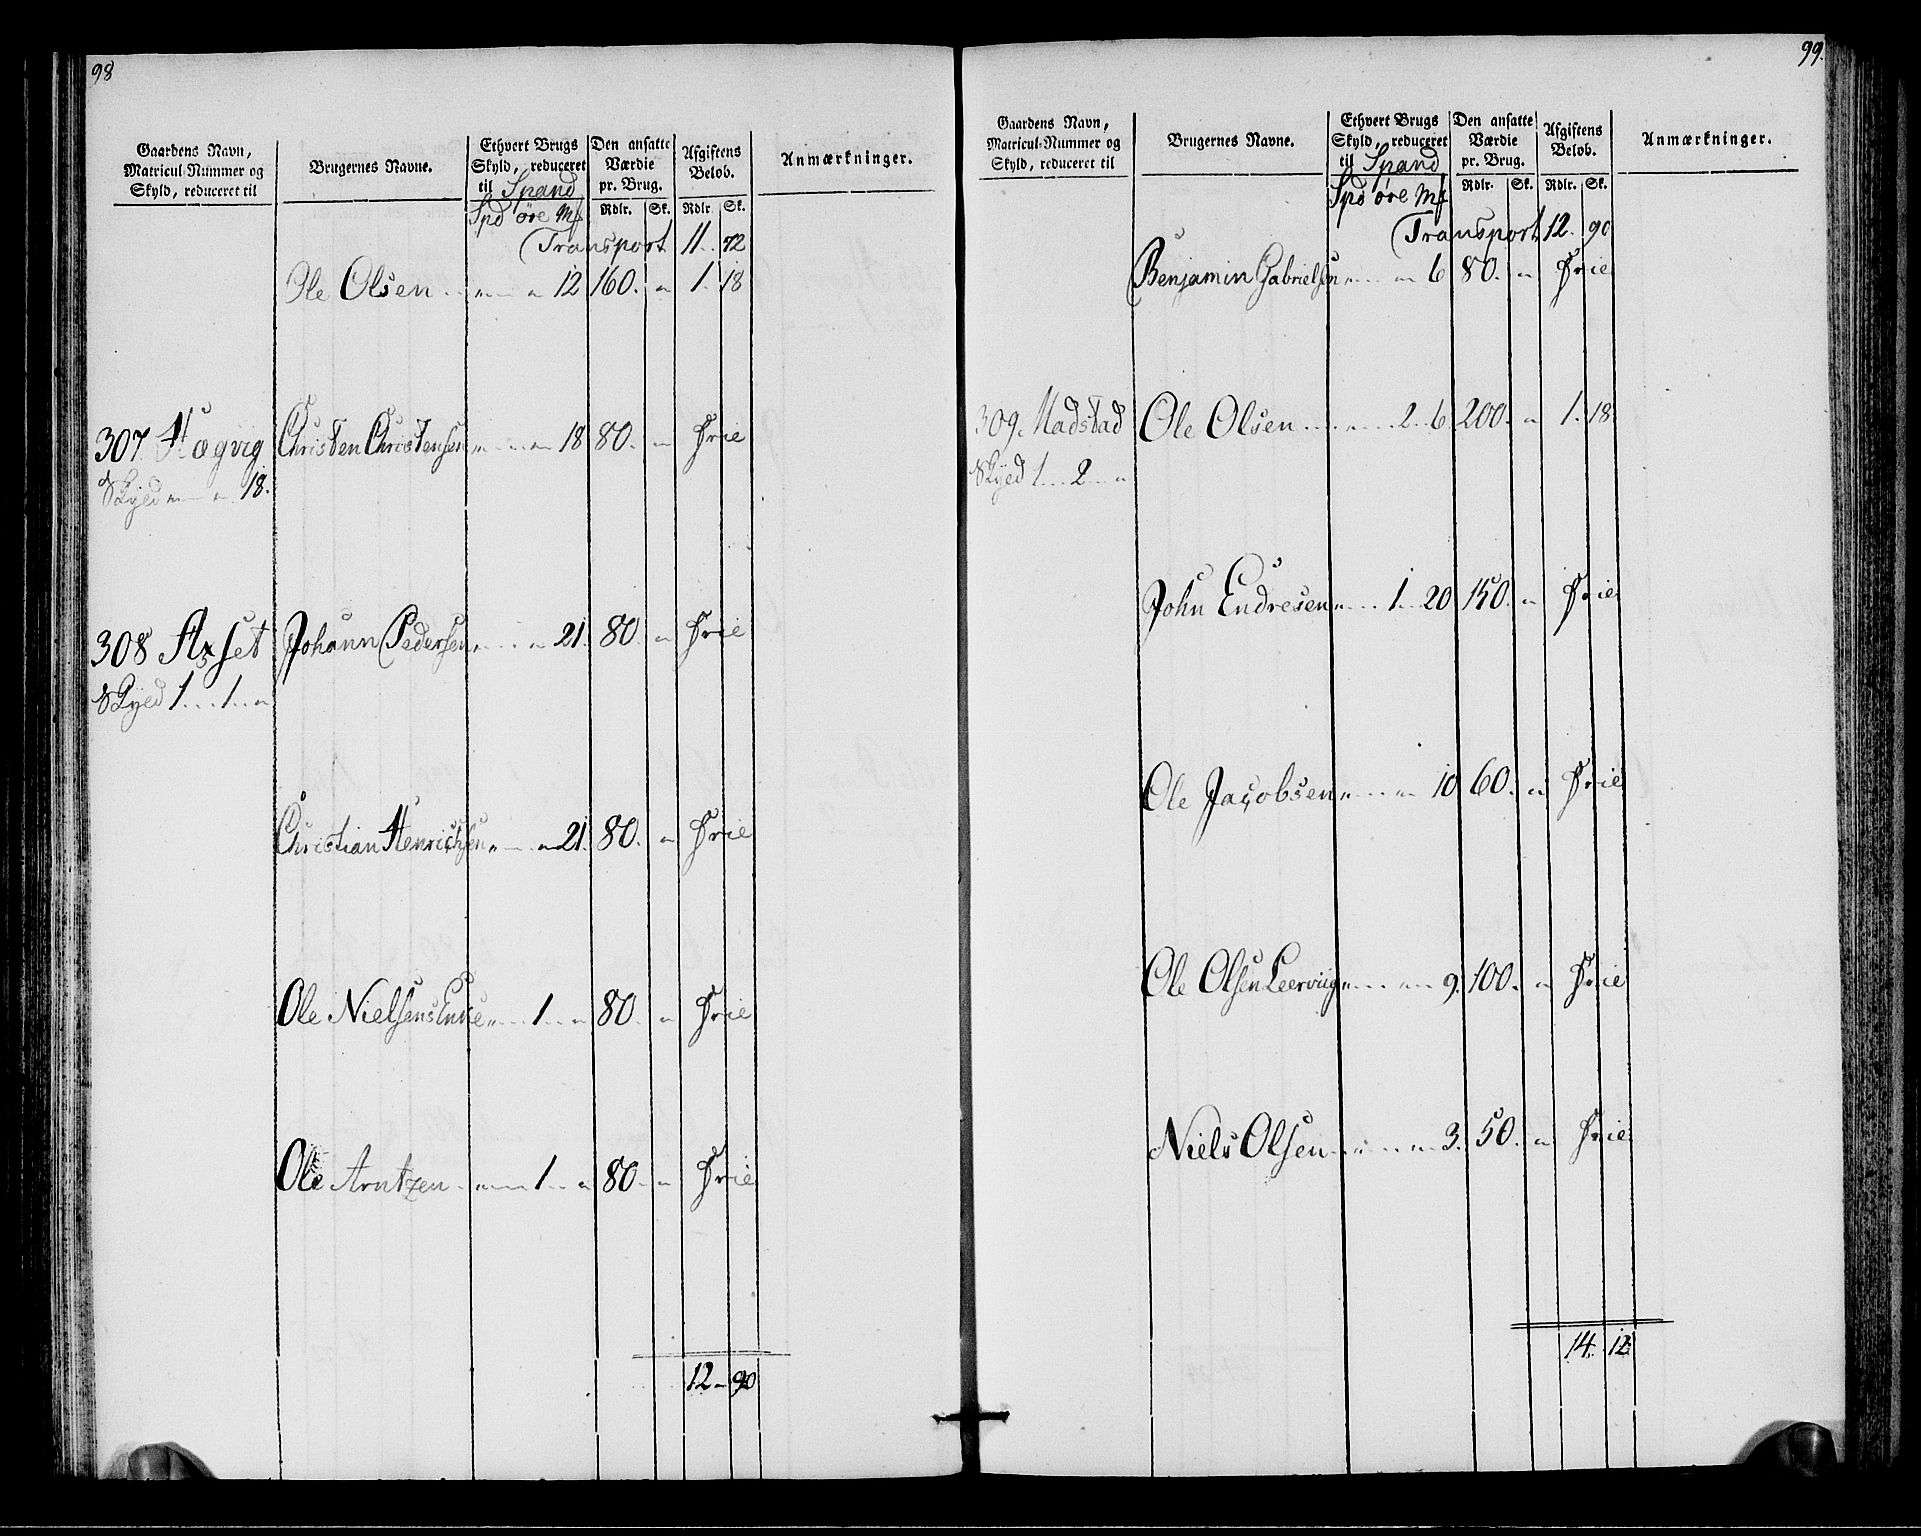 98
Gaardens Navn,
Matricul-Nummer og
Skyld, reduceret til
Brugernes Navne.
Ethvert Brugs
Skyld, reduceret
til Spand
Spd öre Mf
Den ansatte
Værdie
pr. Brug.
Rdlr. Sk.
Afgiftens
Beløb.
Rdlr. Sk.
Anmærkninger.
Transport 11 .. 72
Ole Olsen .. „ .... „ 12 160. „ 1. 18
307 Hægvig Christen Christensen „ .... „ 18 80. „ Frie
Skyld „ .... „ 18.
308 Asset Johann Pedersen „ .... „ 21. 80. „ Frie
Skyld 1 ... 1 .. „
Christian Henrichsen „ .... „ 21. 80. „ Frie
Ole Nielsens Enke „ .... 1 ... „ 80. „ Frie
Ole Arntzen . „ .... 1 ... „ 80. „ Frie
12 „ 90
99.
Gaardens Navn,
Matricul-Nummer og
Skyld, reduceret til
Brugernes Navne.
Ethvert Brugs
Skyld, reduceret
til Spand
Spd öre Mf
Den ansatte
Værdie
pr. Brug.
Rdlr. Sk.
Afgiftens
Beløb.
Rdlr. Sk.
Anmærkninger.
Transport 12. 90
Benjamin Gabrielsen „ .... „ 6 80. „ Frie
309. Madstad Ole Olsen .... „ .... 2 .. 6 200. „ 1. 18.
Skyld 1 .... 2 ... „
John Endresen „ .... 1 ... 20 150. „ Frie
Ole Jacobsen „ .... „ 10 60. „ Frie
Ole Olsen Leerviig „ .... „ 9. 100. „ Frie
Niels Olsen .. „ .... „ 3. 50. „ Frie
14. 12